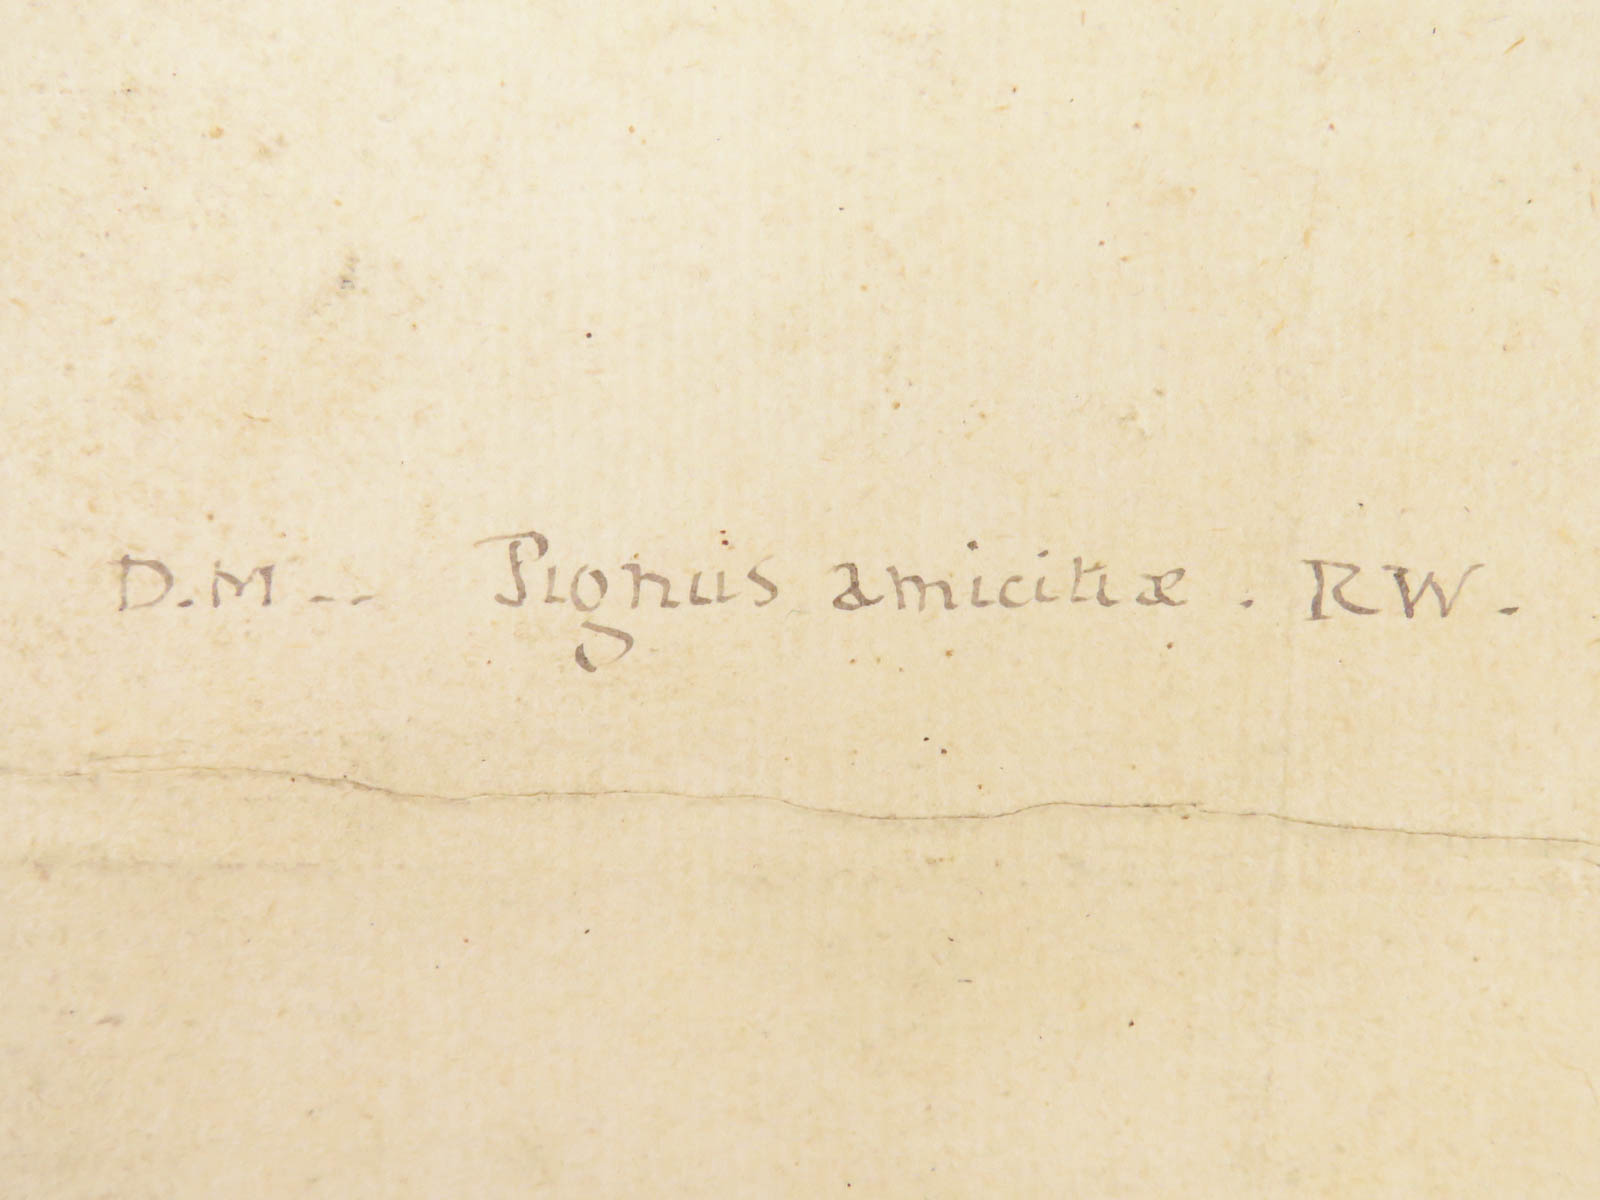 D.M-- Pignus amicitiæ. RW.